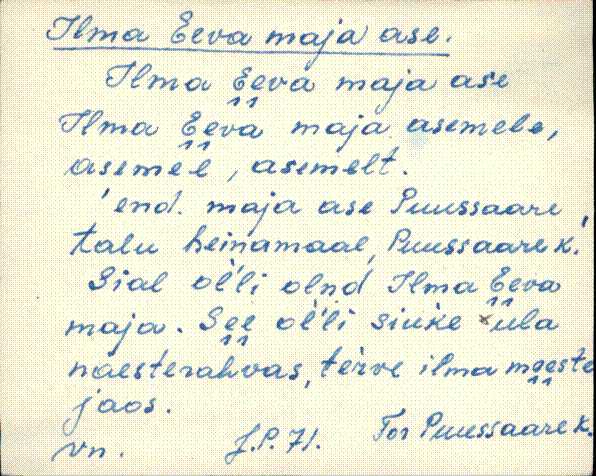 Ilma Eeva maja ase.
Ilma Eeva maja ase
Ilma Eeva maja asemele,
asemel, asemelt.
end. maja ase Puussaare
talu heinamaal, Puussaare k.
Sial ol'li olnd Ilma Eeva
maja. See ol'li siuke ula
naesterahvas, terve ilma meeste
jaos.
vn. J.P. 71. Tor Puussaare k.